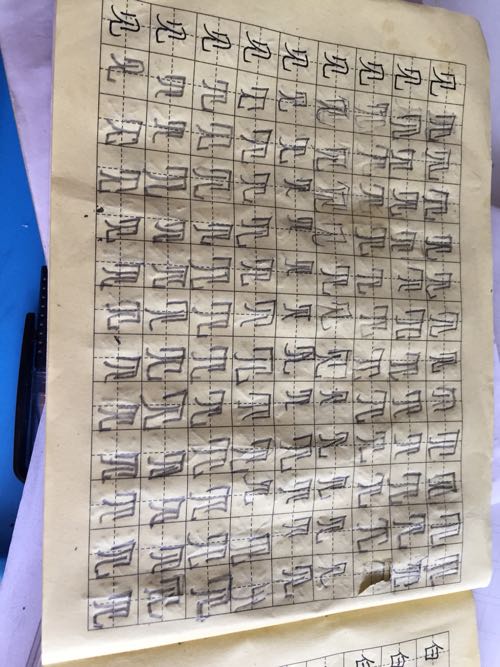 见 见 见 见 见 见 见 见 见
见 见 见 见 见 见 见 见 见
见 见 见 见 见 见 见 见 见
见 见 见 见 见 见 见 见 见
见 见 见 见 见 见 见 见 见
见 见 见 见 见 见 见 见 见
见 见 见 见 见 见 见 见 见
见 见 见 见 见 见 见 见 见
见 见 见 见 见 见 见 见 见
见 见 见 见 见 见 见 见 见
见 见 见 见 见 见 见 见 见
见 见 见 见 见 见 见 见 见
见 见 见 见 见 见 见 见 见
白 白 白